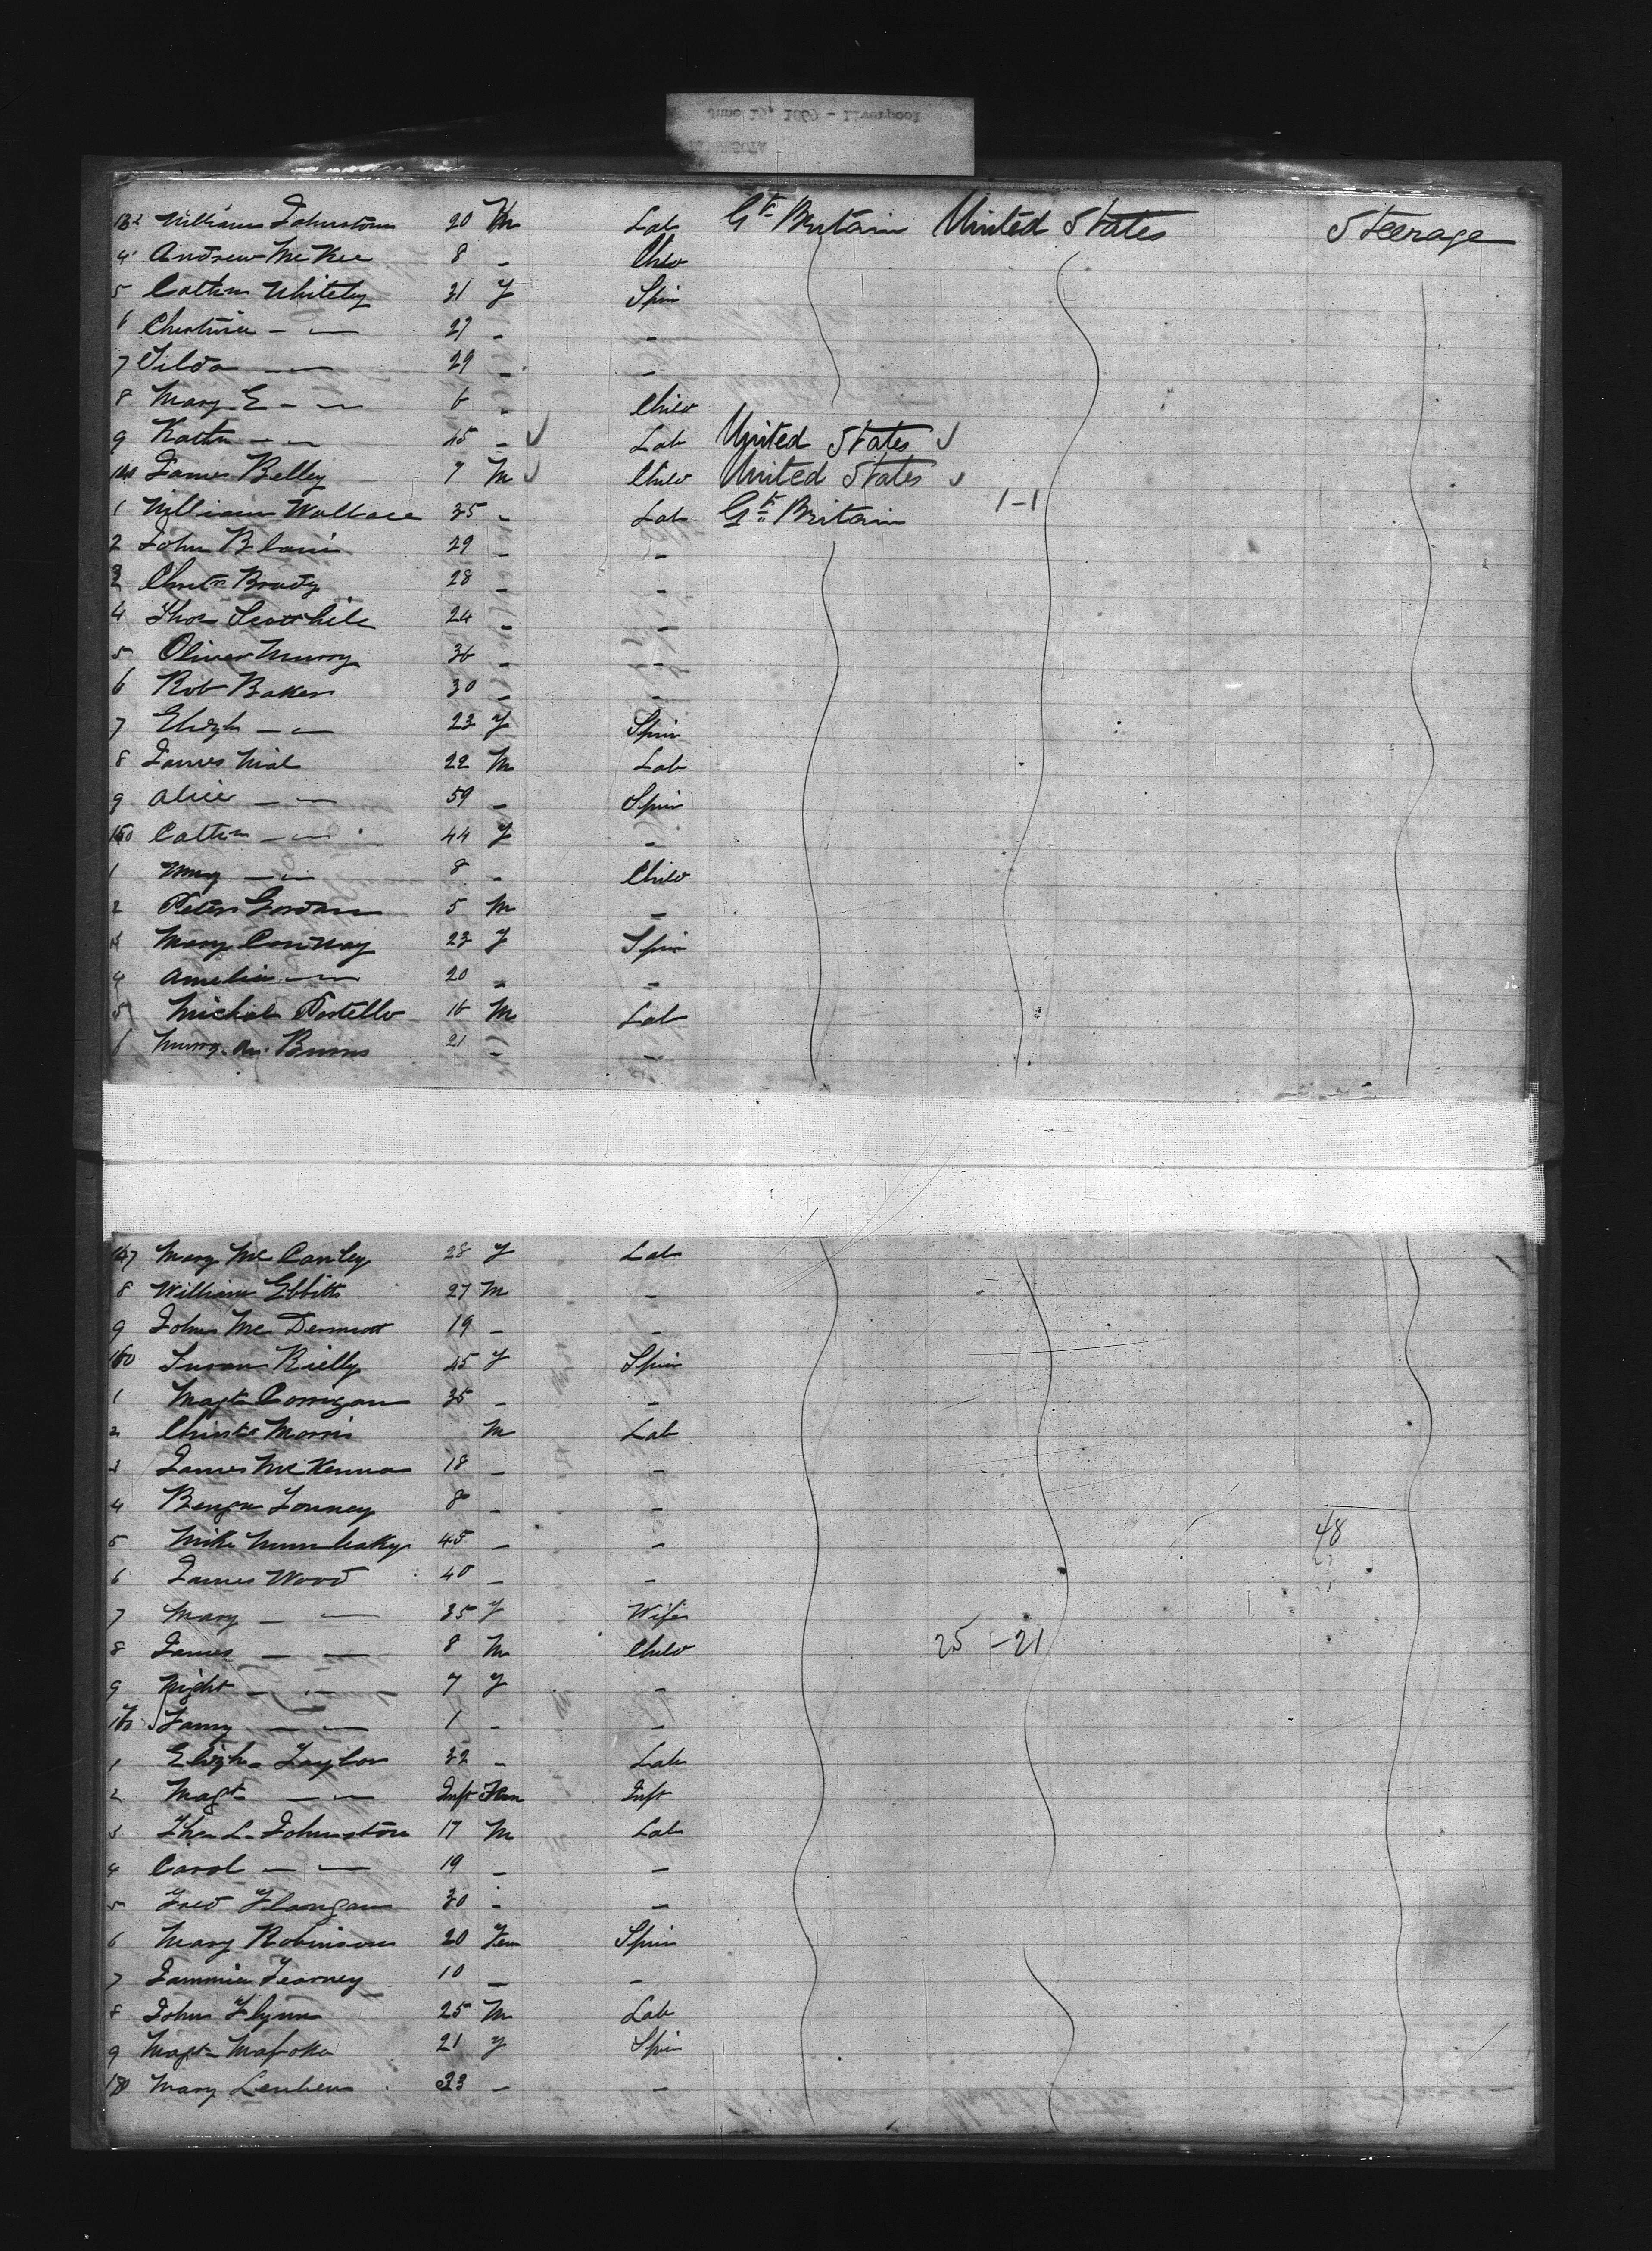 June 19, 1869 - Liverpool
William Johnston 20 M Lab Gt Britain United States Steerage
4 Andrew McKee 8 - Child
5 Cathn Whitely 31 F Spin
6 Christina - - 27 - -
7 Tilda - - 29 - -
8 Mary E - - 6 - Child
9 Kathn - - 45 - Lab United States
140 James Belley 7 M Child United States
1 William Wallace 35 - Lab Gt Britain 1-1
2 John Blain 29 - -
3 Christr Brady 28 - -
4 Thos 24 - -
5 Oliver Murry 36 - -
6 Rob Baker 30 - -
7 Elizh - - 23 F Spin
8 James Nial 22 M Lab
9 Alice - - 59 - Spin
150 Cathn - - 44 F -
1 Mary - - 8 - Child
2 Peter Gordan 5 M -
3 Mary Conway 23 F Spin
4 Amelia - - 20 - -
5 Michal Costello 16 M Lab
6 Burns 21 - -
157 Mary Mc Canley 28 F Lab
8 William Ebbitts 27 M -
9 John Mc Dermott 19 - -
160 Susan Rielly 45 F Spin
1 Magt Corrigan 35 - -
2 Christr Morris M Lab
3 James McKenna 18 - -
4 Benjn 8 - -
5 Mike 45 - - 48
6 James Wood 40 - -
7 Mary - - 35 F Wife
8 James - - 8 M Child 25 -21
9 - - 7 F -
170 Fanny - - 1 - -
1 Elizh Taylor 32 - Lab
2 Magt - - Inft Fem Inft
3 Thos L. Johnston 17 M Lab
4 Carol - - 19 - -
5 Fred Flangan 30 - -
6 Mary Robinson 20 Fem Spin
7 10 - -
8 John Flynn 25 M Lab
9 Magt 21 F Spin
180 Mary 23 - -